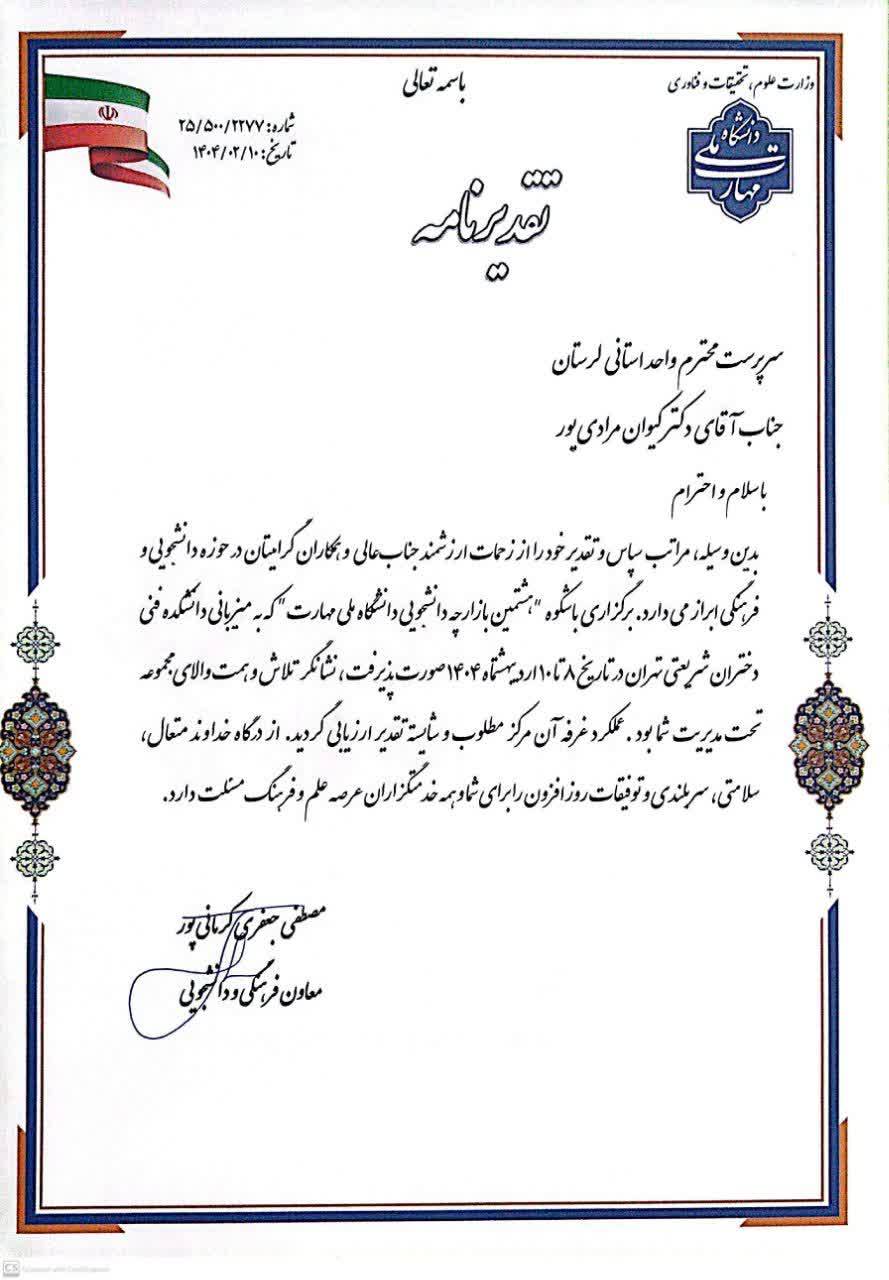 باسمه تعالی
وزارت علوم، تحقیقات و فناوری
دانشگاه
ملی
مهارت
شماره: ۲۵/۵۰۰/۲۲۷۷
تاریخ: ۱۴۰۴/۰۲/۱۰
تقدیرنامه
سرپرست محترم واحد استانی لرستان
جناب آقای دکتر کیوان مرادی پور
باسلام و احترام
بدین وسیله، مراتب سپاس و تقدیر خود را از زحمات ارزشمند جناب عالی و همکاران گرامیتان در حوزه دانشجویی و
فرهنگی ابراز می دارد. برگزاری باشکوه "هشتمین بازارچه دانشجویی دانشگاه ملی مهارت" که به میزبانی دانشکده فنی
دختران شریعتی تهران در تاریخ ۸ تا ۱۰ اردیبهشتماه ۱۴۰۴ صورت پذیرفت، نشانگر تلاش و همت والای مجموعه
تحت مدیریت شما بود. عملکرد غرفه آن مرکز مطلوب و شایسته تقدیر ارزیابی گردید. از درگاه خداوند متعال،
سلامتی، سربلندی و توفیقات روزافزون را برای شما و همه خدمتگزاران عرصه علم و فرهنگ مسئلت دارد.
مصطفی جعفری کرمانی پور
معاون فرهنگی و دانشجویی
CS